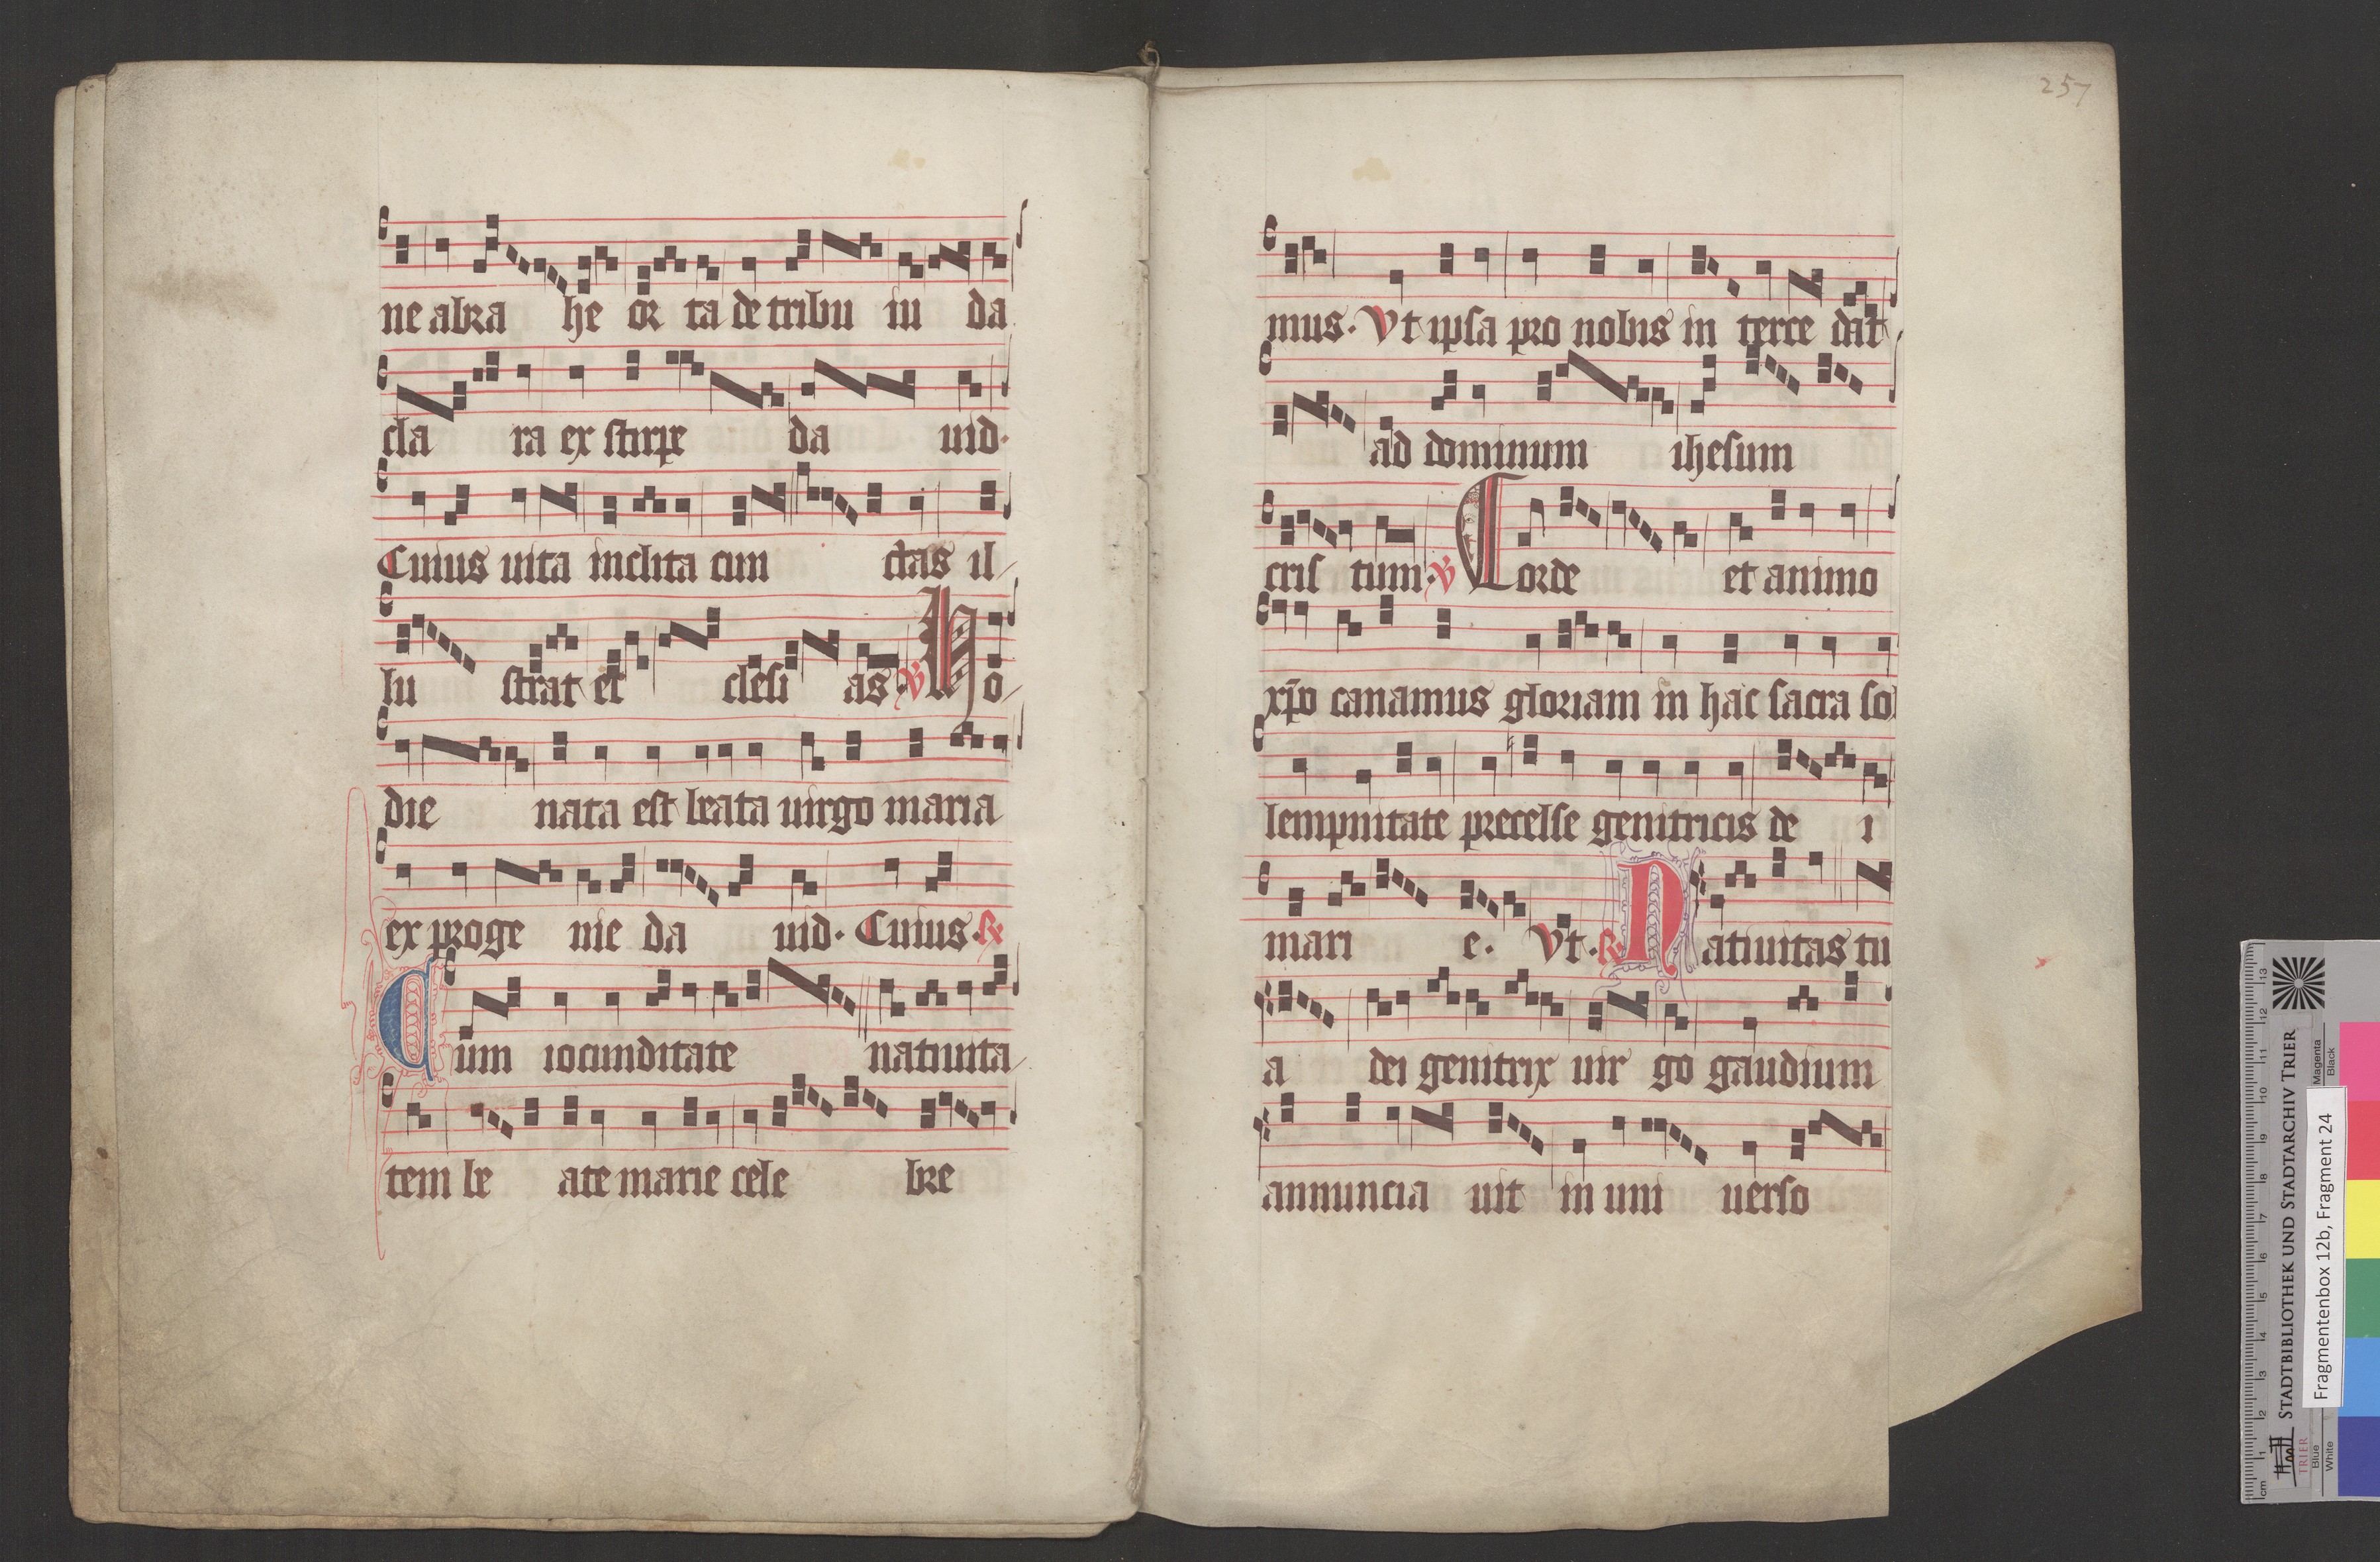 ne abra he or ta de tribu iu da
cla ra ex stirpe da uid.
Cuius uita inclita cun ctas il
lu strat ec clesi as. V Ho
die nata est beata uirgo maria
ex proge nie da uid. Cuius. R
Cum iocunditate natiuita
tem be ate marie cele bre
257
mus. Vt ipsa pro nobis in terce dat
ad dominum ihesum
cris tum. V Corde et animo
xpo canamus gloriam in hac sacra so
lempnitate precelse genitricis de i
mari e. Vt. R Natiuitas tu
a dei genitrix uir go gaudium
annuncia uit in uni uerso
STADTBIBLIOTHEK UND STADTARCHIV TRIER
Fragmentenbox 12b, Fragment 24
TRIER
Magenta
Black
Blue
White
cm 1 2 3 4 5 6 7 8 9 10 11 12 13